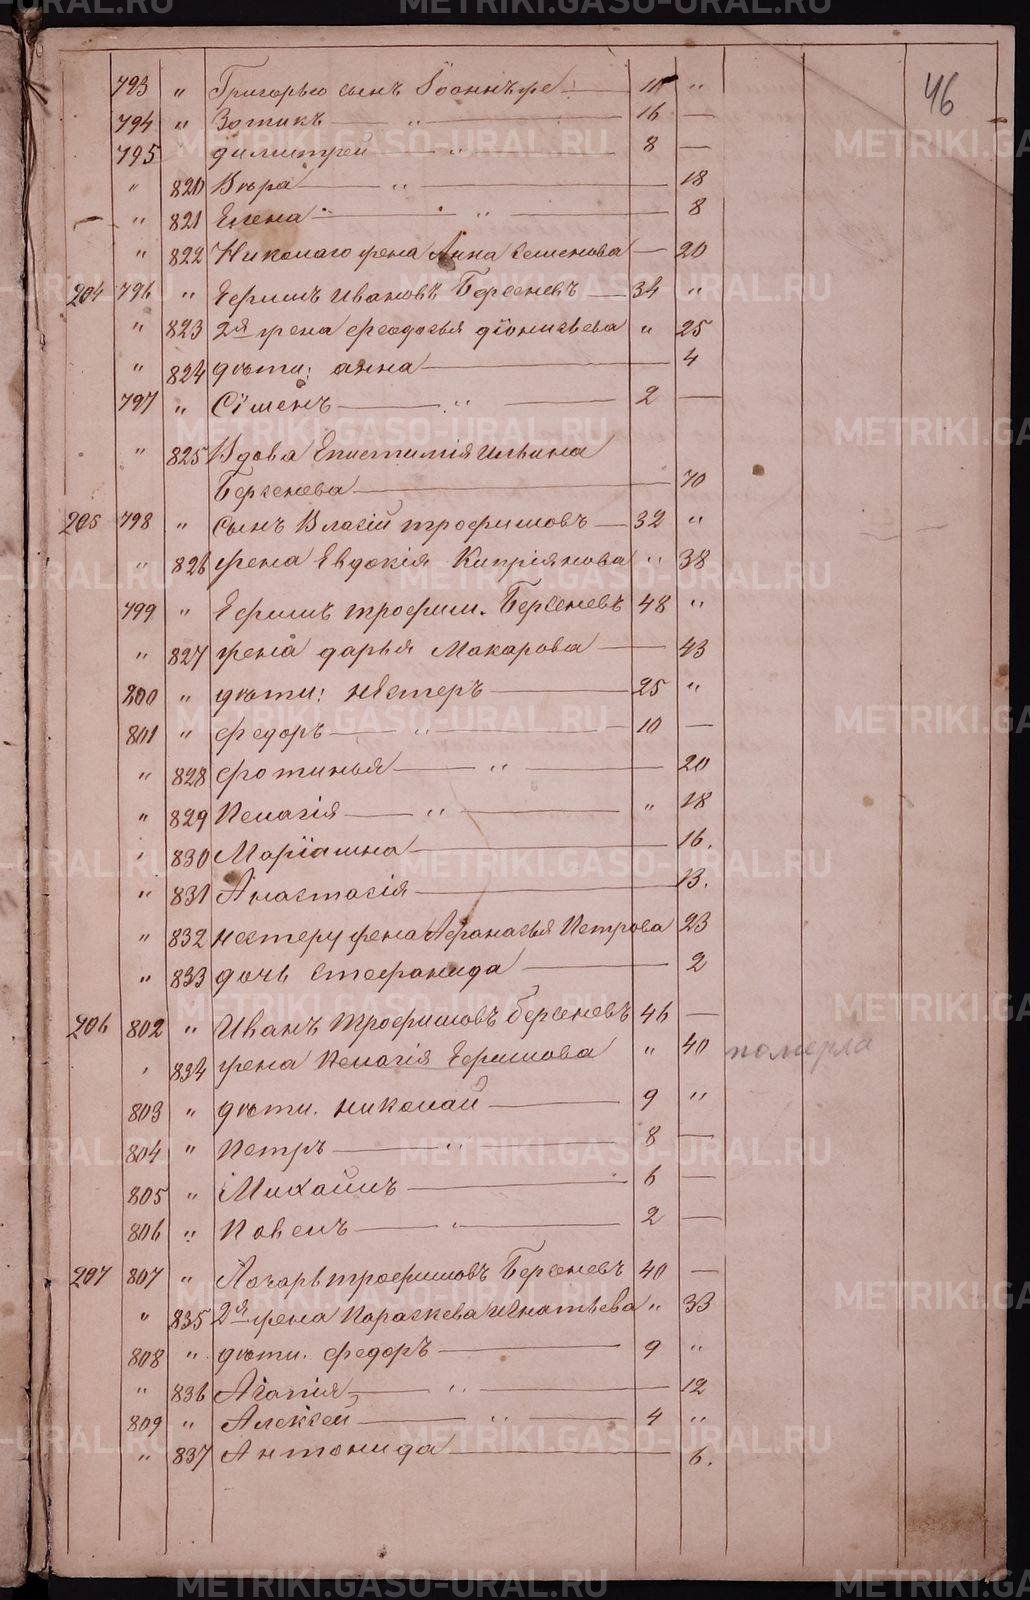 46
793 " Григорью сынъ Іоаннъ же — 11 "
794 " Зотикъ — " — 16 —
795 димитрей — " — 8 —
" 820 Вѣра — " — 18
" 821 Елена — " — 8
" 822 Николаю жена Анна Семенова — 20
204 796 " Ефимъ Ивановъ Берсеневъ — 34 "
" 823 2я жена феодосья діонисьева " 25
" 824 дѣти: анна — 4
797 " Сіменъ — " — 2 —
" 825 Вдова Епистимія Ильина
Берсенева — 70
205 798 " сынъ Власій трофимовъ — 32 "
" 826 жена Евдокія Кипріянова " 38
799 " Ефимъ трофим. Берсеневъ 48 "
" 827 жена дарья Макарова — 43
200 " дѣти: нестеръ — 25 "
801 " федоръ — " — 10 —
" 828 фотинья — " — 20
" 829 Пелагія — " — " 18
" 830 Маріамна — 16.
" 831 Анастасія — 13.
" 832 нестеру жена Афанасья Петрова 23
" 833 дочь стефанида — 2
206 802 " Иванъ Трофимовъ берсеневъ 46 —
" 834 жена Пелагія Ефимова " 40 померла
803 " дѣти. николай — 9 "
804 " Петръ — " — 8 —
805 " Михаилъ — 6 —
806 " Павелъ — " — 2 —
207 807 " Лазарь трофимовъ Берсеневъ 40 —
" 835 2я жена Параскева Игнатьева " 33
808 " дѣти. федоръ — 9 "
" 836 Агапія — " — 12
809 " Алексей — " — 4 "
" 837 Антонида — 6.
METRIKI.GASO-URAL.RU